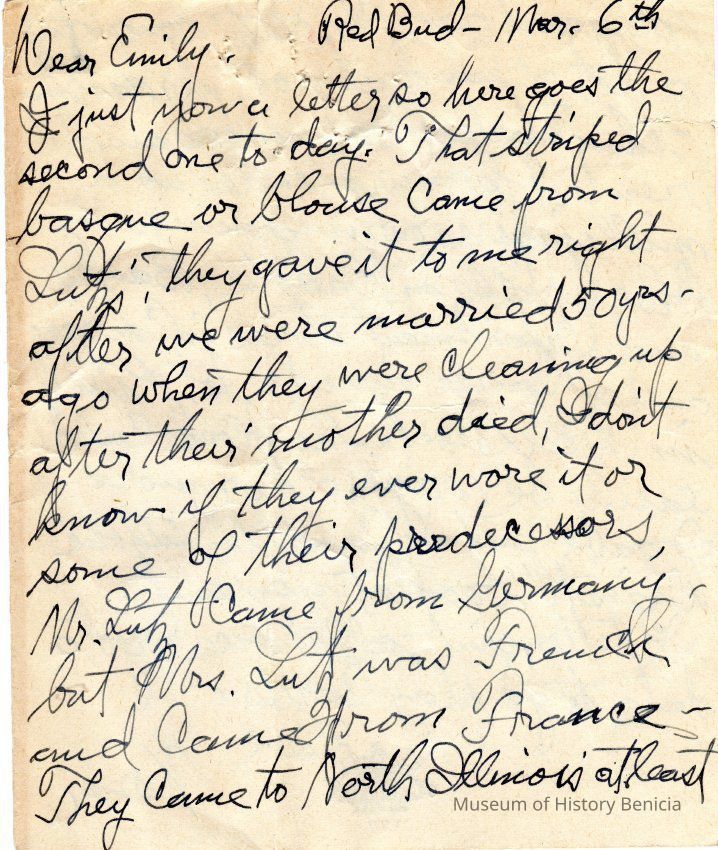 Red Bud - Mar. 6th
Dear Emily.
I just now a letter so here goes the
second one to day. That striped
basque or blouse came from
Lutz's, they gave it to me right
after we were married 50 yrs -
ago when they were cleaning up
after their mother died, I don't
know if they ever wore it or
some of their predecessors,
Mr. Lutz came from Germany -
but Mrs. Lutz was French
and came from France -
They came to North Illinois at least
Museum of History Benicia